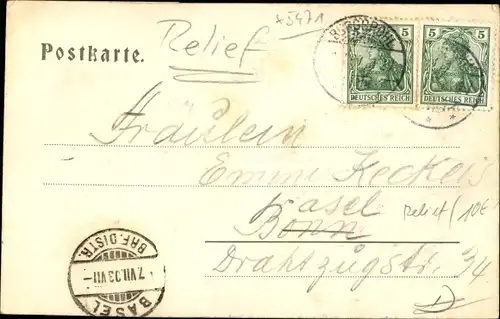 +5971
Relief
Postkarte.
5 5
DEUTSCHES REICH DEUTSCHES REICH
Fräulein
Emmi Keckeis
Basel
Bonn
Relief (10€)
Drahtzugstr. 34
BASEL
7.VII.03.VII-
BRF.DISTR.